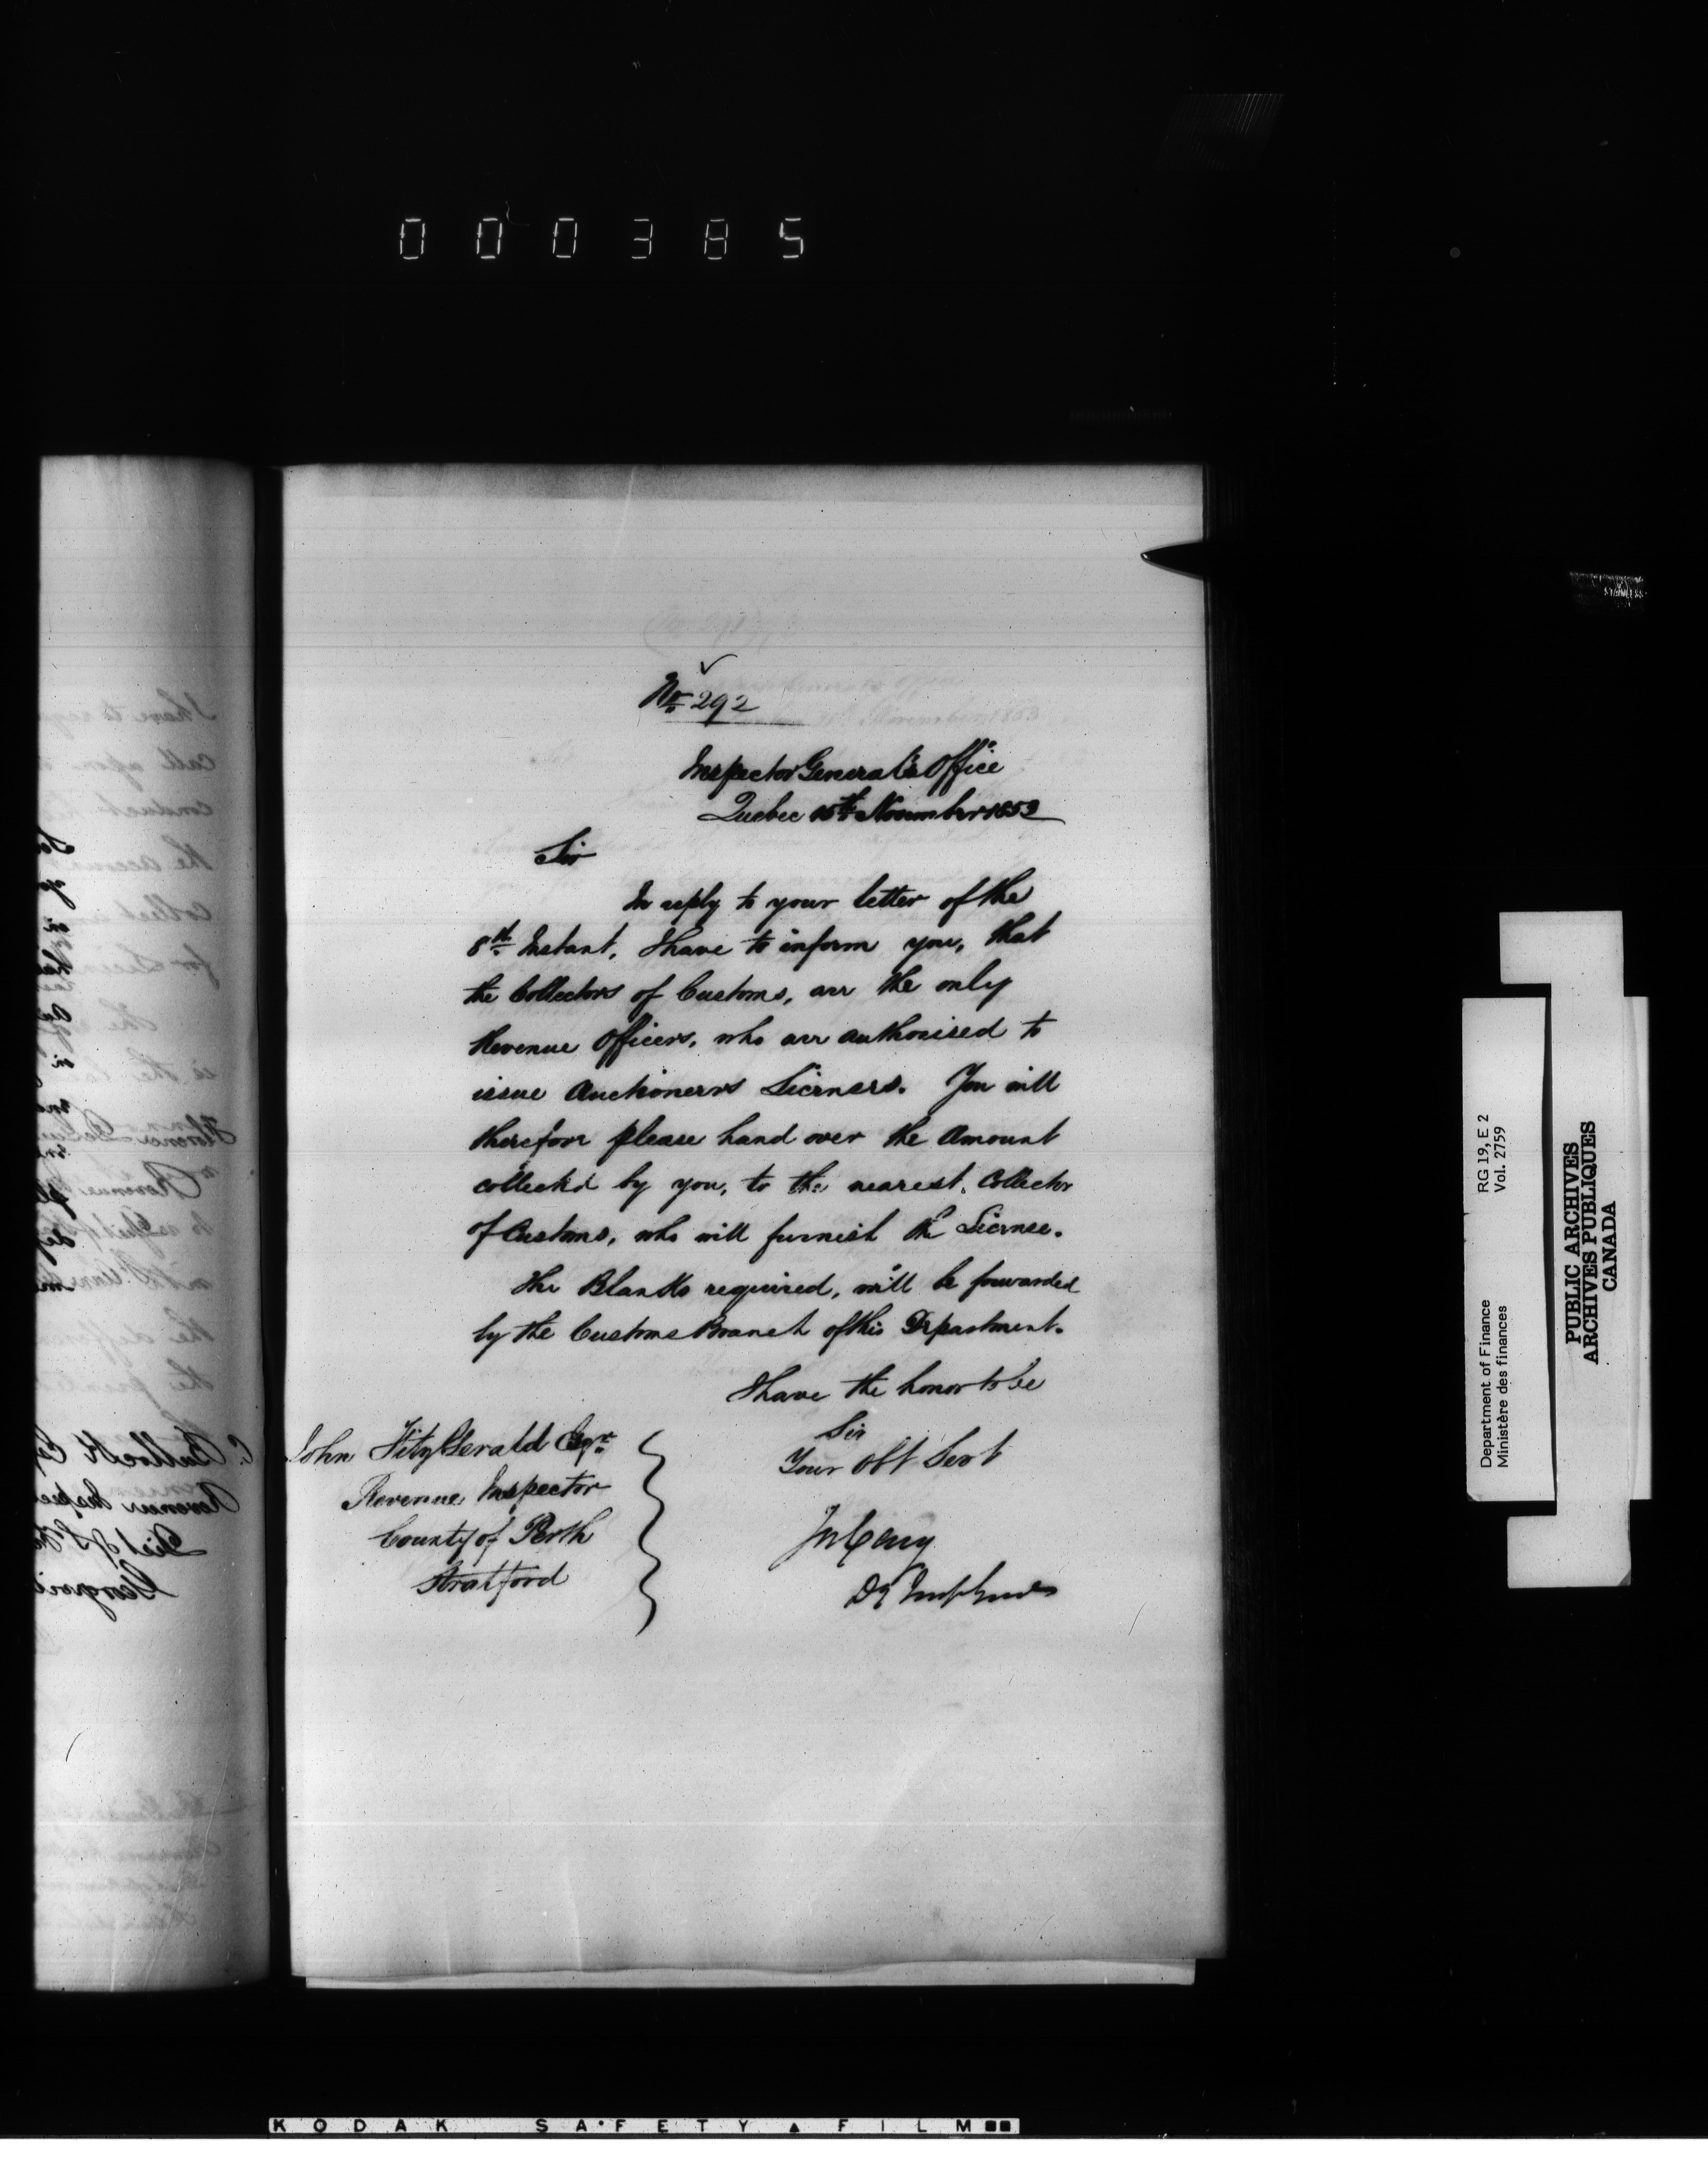 000385
No 292
Inspector General's Office
Quebec 15th November 1853
Sir
In reply to your letter of the
8th Instant, I have to inform you, that
the Collectors of Customs, are the only
Revenue Officers, who are authorised to
issue Auctioneers Licenses. You will
therefore please hand over the Amount
collected by you, to the nearest Collector
of Customs, who will furnish the License.
The Blanks required, will be forwarded
by the Customs Branch of this Department.
I have the honor to be
Sir
Your Obt Servt
John FitzGerald Esqr
Revenue Inspector
County of Perth
Stratford
Jos Cary
Dy Insp Genl
Department of Finance
Ministère des finances
RG 19, E 2
Vol. 2759
PUBLIC ARCHIVES
ARCHIVES PUBLIQUES
CANADA
STAINLESS
KODAK SAFETY FILM